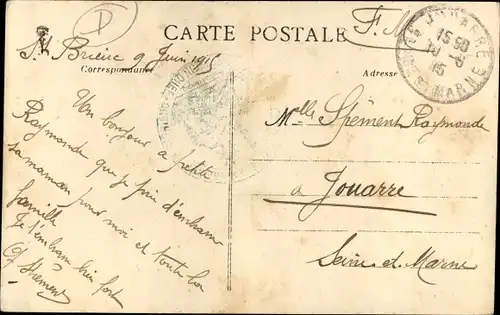 D
F.
CARTE POSTALE
Correspondance
Adresse
St Brieuc 9 Juin 1915
Un bonjour a petite
Raymonde que je prie d'embrasser
sa maman pour moi et toute la
famille
Je t'embrasse bien fort
Melle Raymonde
a Jouarre
Seine et Marne
JOUARRE
15 50
10 - 6
15
MARNE